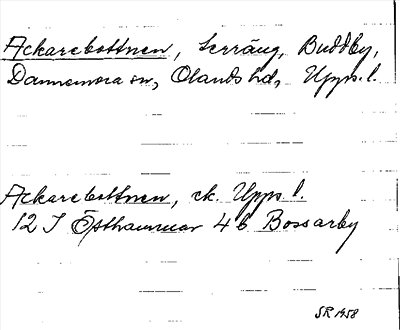 Ackarebottnen, Terräng, Buddby,
Dannemora sn, Olands hd, Upps. l.
Ackarebottnen, ek. Upps l.
12 I Östhammar 4b Bossarby
SR 1958